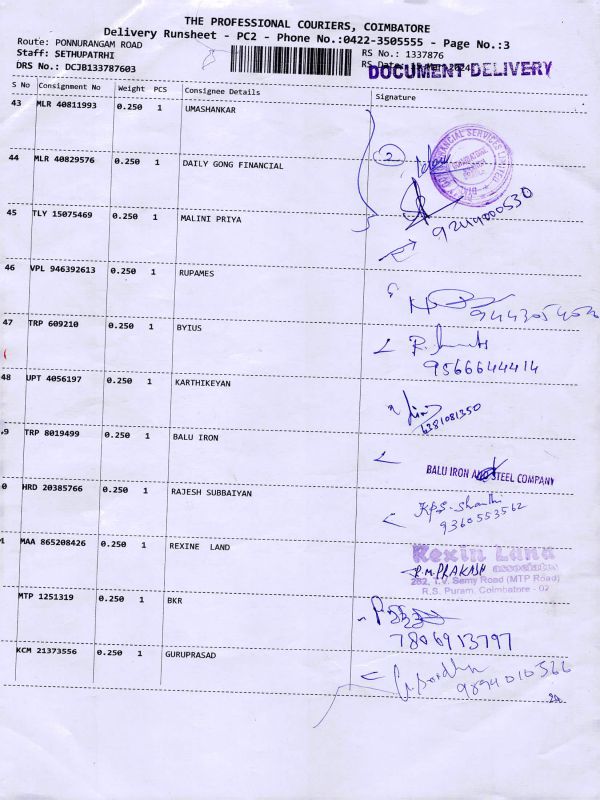 THE PROFESSIONAL COURIERS, COIMBATORE
Delivery Runsheet - PC2 - Phone No.:0422-3505555 - Page No.:3
Route: PONNURANGAM ROAD
Staff: SETHUPATRHI
RS No.: 1337876
DRS No.: DCJB133787603
RS Date:
DOCUMENT DELIVERY
S No Consignment No Weight PCS Consignee Details Signature
43 MLR 40811993 0.250 1 UMASHANKAR
44 MLR 40829576 0.250 1 DAILY GONG FINANCIAL 2
45 TLY 15075469 0.250 1 MALINI PRIYA
46 VPL 946392613 0.250 1 RUPAMES
47 TRP 609210 0.250 1 BYIUS
9566644414
48 UPT 4056197 0.250 1 KARTHIKEYAN
6381081350
9 TRP 8019499 0.250 1 BALU IRON
BALU IRON AND STEEL COMPANY
0 HRD 20385766 0.250 1 RAJESH SUBBAIYAN
9360553562
1 MAA 865208426 0.250 1 REXINE LAND
Rexin Land
associates
R.M.PRAKASH
282, T.V. Samy Road (MTP Road)
R.S. Puram, Coimbatore - 02
MTP 1251319 0.250 1 BKR
7806913797
KCM 21373556 0.250 1 GURUPRASAD
9894010566